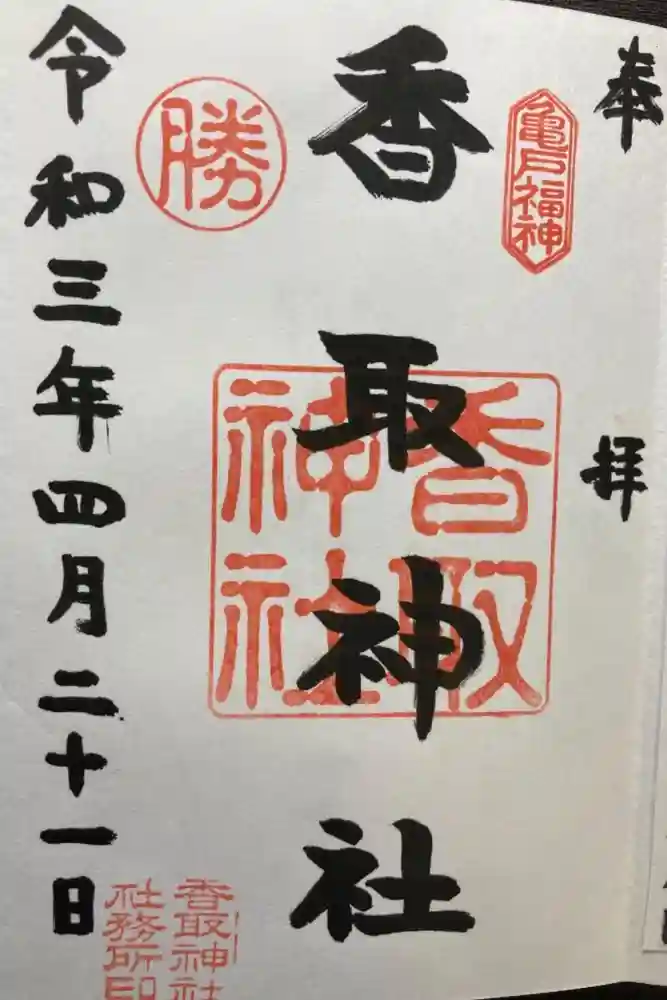 奉拝
亀戸福神
香取神社
香取神社
勝
香取神社
社務所印
令和三年四月二十一日